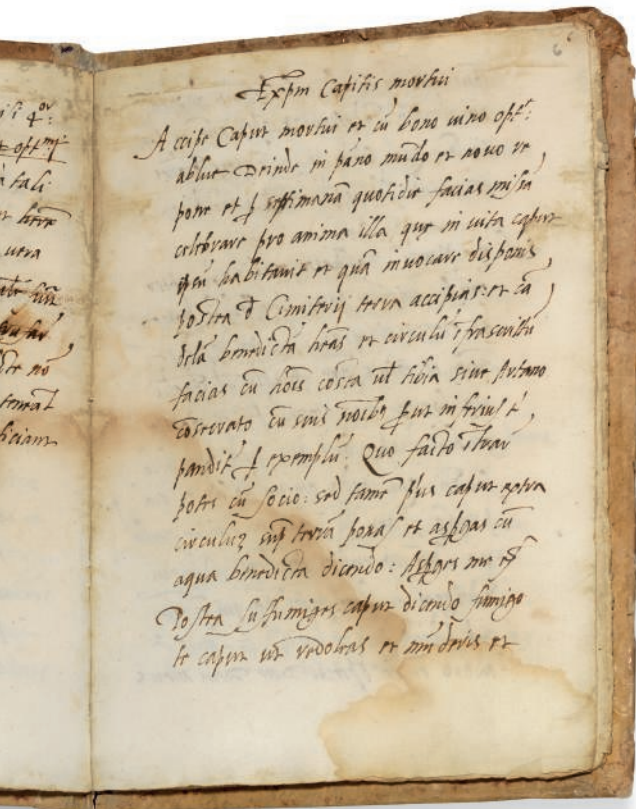 6
Exp̃m Capitis mortui
Accipe Caput mortui et cũ bono uino opt:
ablue Deinde in pãno mũdo et nouo re
pone et ꝑ septimanã quotidie facias missã
celebrare pro anima illa que in uita caput
habitauit et quã inuocare disponis,
postea d Cimiterij terra accipias: et cã
benedictã heãs et circulũ ĩfrascriptũ
facias cũ hoĩs costa ul tibia siue Artauo
cõsecrato cũ suis noĩbꝫ ꝓut inferius
pandit̃ ꝑ exemplũ. Quo facto ĩtrar
potes cũ socio: sed tamẽ pius caput extra
circuluꝫ suꝑ terrã ponas et asꝑgas cũ
aqua benedicta dicendo: Asꝑges me
Postea suffumiges caput dicendo fumigo
te caput ut redoleas et mũderis et
4or
opt
tali
here
uera
no
teneat
ficiant